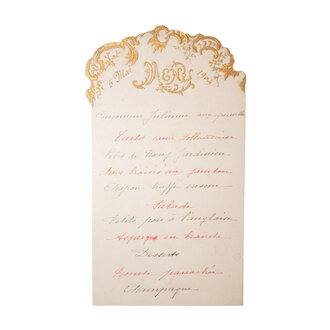 Le 6 Mai Menu 190
Consommé Julienne aux
Turbot sauce Hollandaise
Filet de Bœuf Jardinière
braisés au jambon
Chapon truffé cresson
Salade
Petits pois à l'anglaise
Asperges en branche
Desserts
Bombe panachée
Champagne